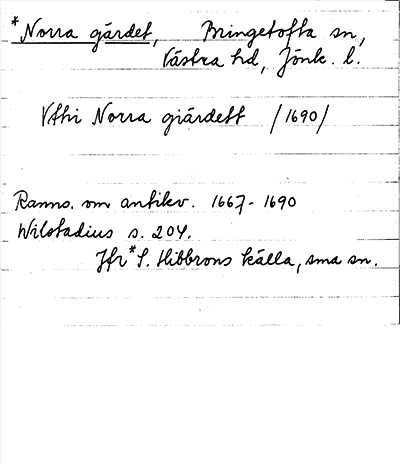 *Norra gärdet, Bringetofta sn,
Västra hd, Jönk. l.
Vthi Norra giärdett /1690/
Ranns. om antikv. 1667-1690
Wilstadius s. 204.
Jfr *S. Hibbrons källa, sma sn.